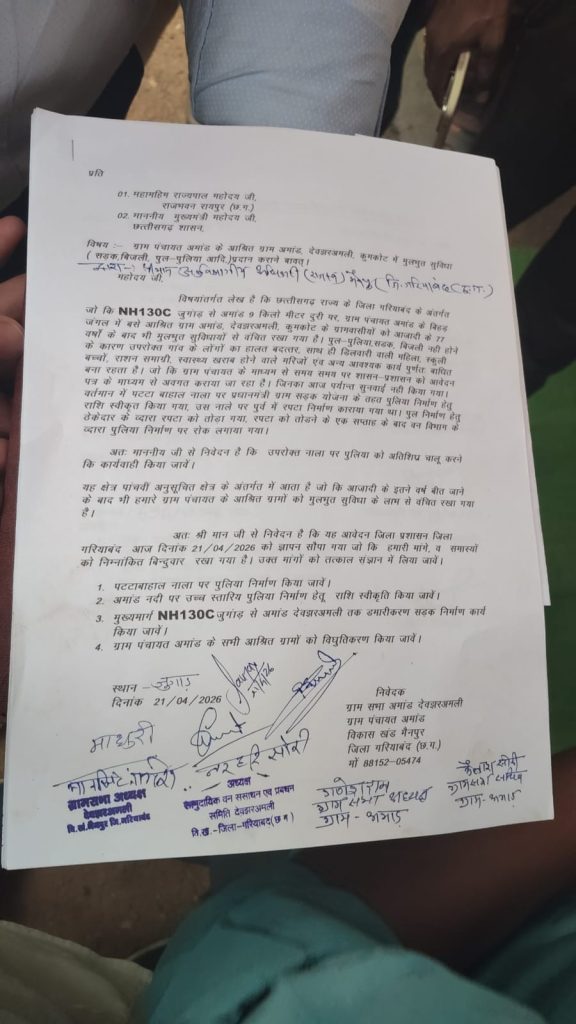 प्रति
01. महामहिम राज्यपाल महोदय जी,
राजभवन रायपुर (छ.ग.)
02. माननीय मुख्यमंत्री महोदय जी,
छत्तीसगढ़ शासन,
विषय :- ग्राम पंचायत अमांड के आश्रित ग्राम अमांड, देवझरअमली, कुमकोट में मुलभुत सुविधा
(सड़क,बिजली, पुल-पुलिया आदि)प्रदान कराने बावत्।
द्वारा:- श्रीमान अनुविभागीय अधिकारी (राजस्व) मैनपुर (जि. गरियाबंद (छ.ग.)
महोदय जी,
विषयांतर्गत लेख है कि छत्तीसगढ़ राज्य के जिला गरियाबंद के अंतर्गत
जो कि NH130C जुगांड़ से अमांड 9 किलो मीटर दुरी पर, ग्राम पंचायत अमांड के बिहड़
जंगल में बसे आश्रित ग्राम अमांड, देवझरअमली, कुमकोट के ग्रामवासीयों को आजादी के 77
वर्षों के बाद भी मुलभुत सुविधाओं से वंचित रखा गया है। पुल-पुलिया,सडक, बिजली नही होने
के कारण उपरोक्त गांव के लोगों का हालत बदत्तर, साथ ही डिलवारी वाली महिला, स्कूली
बच्चों, राशन समाग्री, स्वास्थ्य खराब होने वाले मरिजों एवं अन्य आवश्यक कार्य पुर्णतः बाधित
बना रहता है। जो कि ग्राम पंचायत के माध्यम से समय समय पर शासन-प्रशासन को आवेदन
पत्र के माध्यम से अवगत कराया जा रहा है। जिनका आज पर्यान्त सुनवाई नही किया गया।
वर्तमान में पटटा बाहाल नाला पर प्रधानमंत्री ग्राम सड़क योजना के तहत पुलिया निर्माण हेतु
राशि स्वीकृत किया गया, उस नाले पर पुर्व में रपटा निर्माण काराया गया था। पुल निर्माण हेतु
ठेकेदार के व्दारा रपटा को तोड़ा गया, रपटा को तोडने के एक सप्ताह के बाद वन विभाग के
व्दारा पुलिया निर्माण पर रोक लगाया गया।
अतः माननीय जी से निवेदन है कि उपरोक्त नाला पर पुलिया को अतिशिघ्र चालू करने
कि कार्यवाही किया जावें।
यह क्षेत्र पांचवी अनुसूचित क्षेत्र के अंतर्गत में आता है जो कि आजादी के इतने वर्ष बीत जाने
के बाद भी हमारे ग्राम पंचायत के आश्रित ग्रामों को मुलभुत सुविधा के लाभ से वंचित रखा गया
है।
अतः श्री मान जी से निवेदन है कि यह आवेदन जिला प्रशासन जिला
गरियाबंद आज दिनांक 21/04/2026 को ज्ञापन सौपा गया जो कि हमारी मांगे, व समास्यों
को निम्नांकित बिन्दुवार रखा गया है। उक्त मांगों को तत्काल संज्ञान में लिया जावें।
1. पटटाबाहाल नाला पर पुलिया निर्माण किया जावें।
2. अमांड नदी पर उच्च स्तारिय पुलिया निर्माण हेतू राशि स्वीकृति किया जावें।
3. मुख्यमार्ग NH130C जुगांड़ से अमांड देवझरअमली तक डमारीकरण सड़क निर्माण कार्य
किया जावें।
4. ग्राम पंचायत अमांड के सभी आश्रित ग्रामों को विधुतिकरण किया जावें।
स्थान - जुगाड़
दिनांक 21/04/2026
निवेदक
ग्राम सभा अमांड देवझरअमली
ग्राम पंचायत अमांड
विकास खंड मैनपुर
जिला गरियाबंद (छ.ग.)
मों 88152-05474
माधुरी
ग्रामसभा अध्यक्ष
देवझरअमली
वि.खं.मैनपुर जि.गरियाबंद
नरहरि सोरी
अध्यक्ष
सामुदायिक वन संसाधन एवं प्रबंधन
समिति देवझरअमली
वि.ख.-जिला-गरियाबंद(छ.ग)
ग्राम सभा अध्यक्ष
ग्राम - अमाड़
कैलाश सोरी
ग्रामसभा सचिव
ग्राम - अमाड़